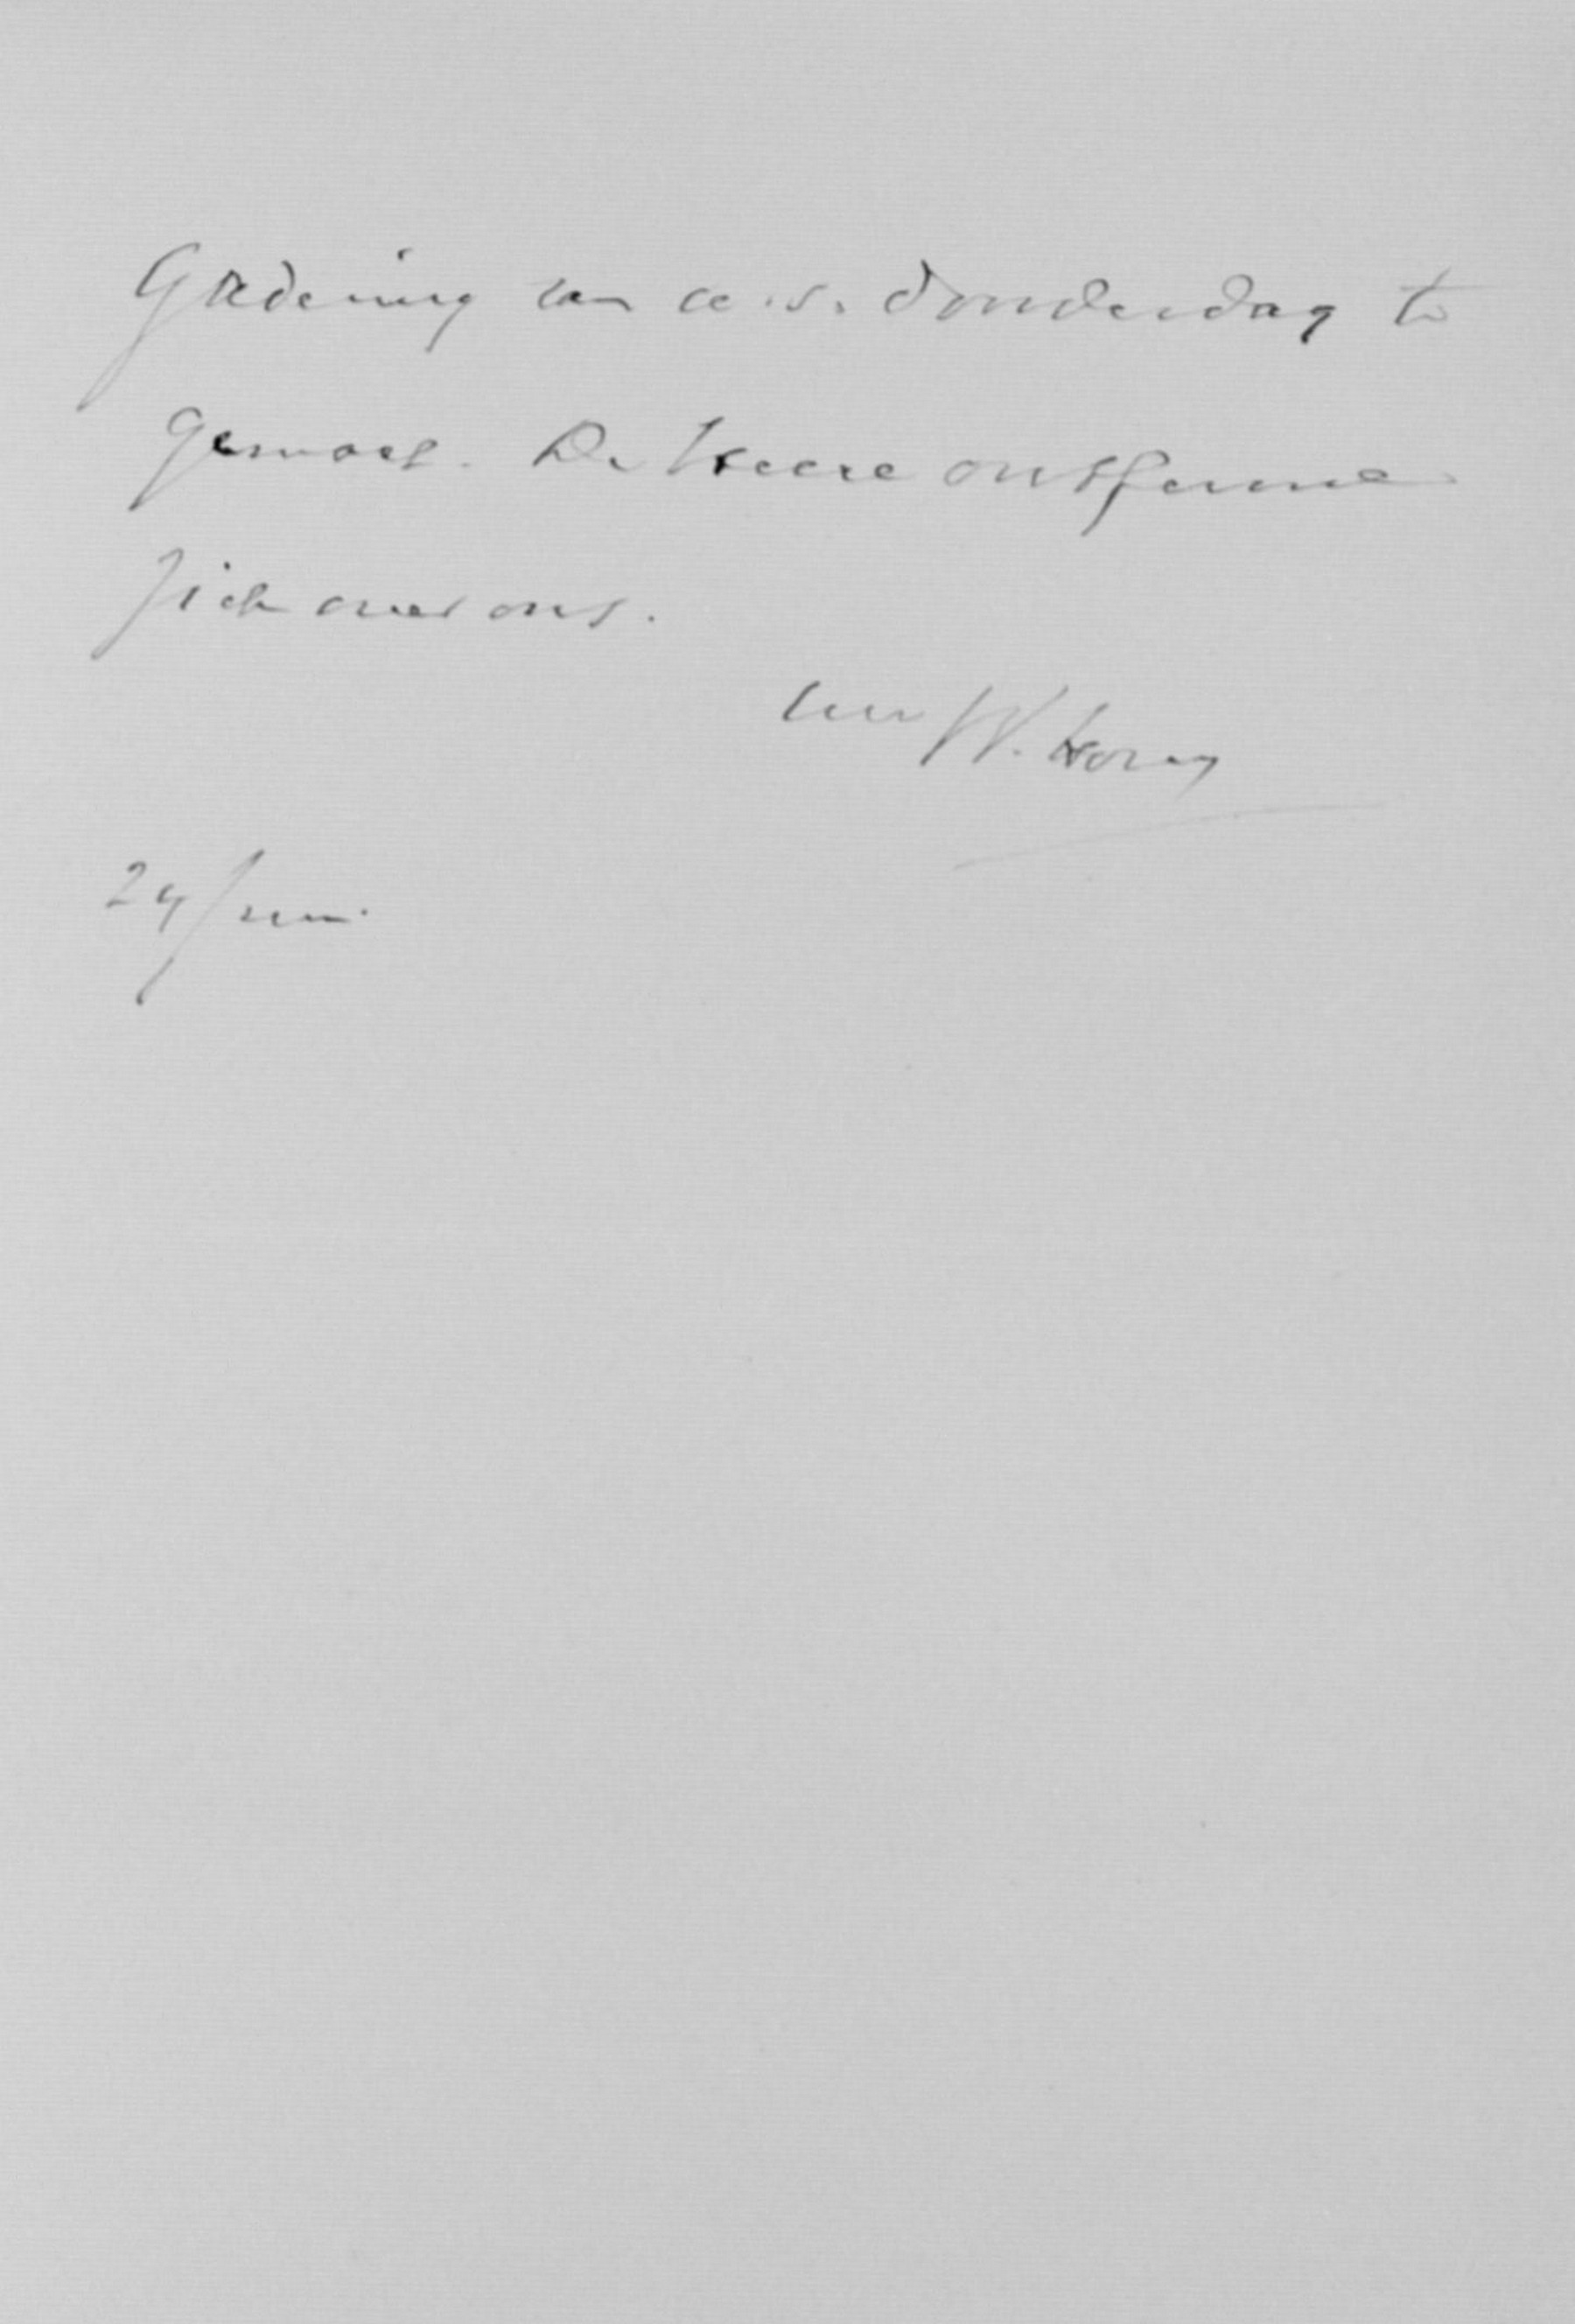 gadering van a.s. donderdag te
gemoet. De Heere ontferme
zich over ons.
Uw W. Hovy
24/juni